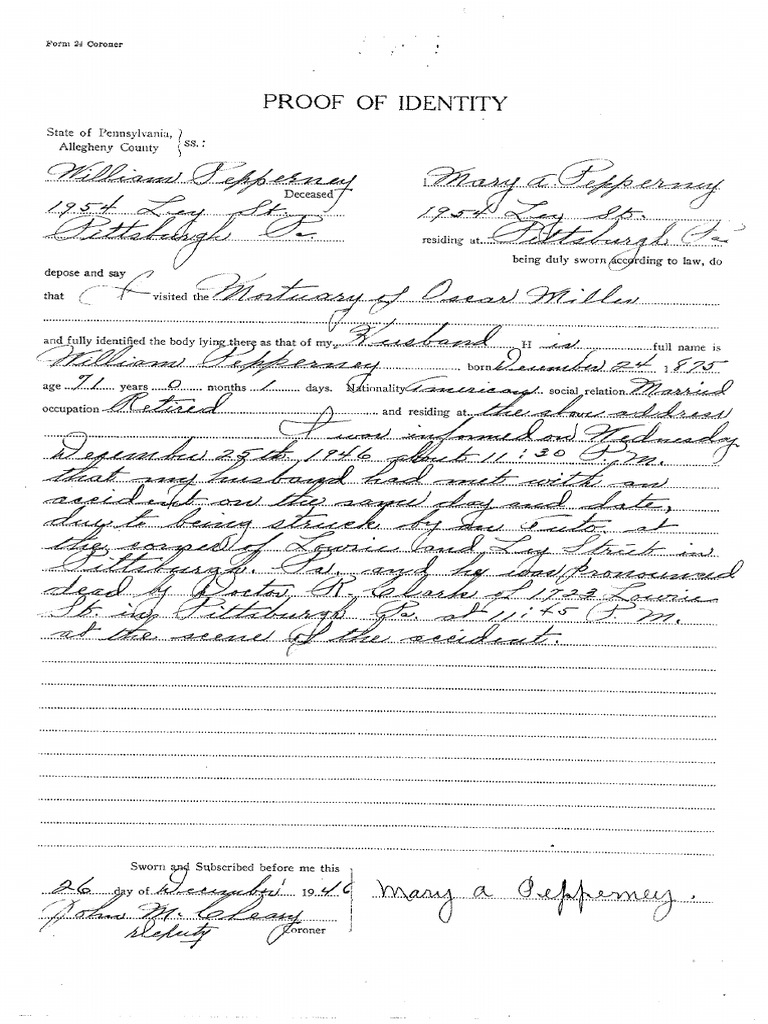 Form 24 Coroner
PROOF OF IDENTITY
State of Pennsylvania,
Allegheny County
ss.:
William Pepperney
Deceased
1954 Ley St.
Pittsburgh Pa.
Mary A. Pepperney
1954 Ley St.
residing at Pittsburgh Pa
being duly sworn according to law, do
depose and say
that I visited the Mortuary of Oscar Miller
and fully identified the body lying there as that of my Husband H is full name is
William Pepperney born December 24 1875
age 71 years 0 months 1 days. Nationality American social relation Married
occupation Retired and residing at the above address
I was informed on Wednesday
December 25th 1946 about 11:30 P.M.
that my husband had met with an
accident on the same day and date,
due to being struck by an auto at
the corner of Lowrie and Ley Street in
Pittsburgh. Pa. and he was pronounced
dead by Doctor R. Clark of 1723 Lowrie
St. in Pittsburgh Pa. at 11:45 P.M.
at the scene of the accident.
Sworn and Subscribed before me this
26 day of December 1946
John M. Cleary
Deputy Coroner
Mary A Pepperney.